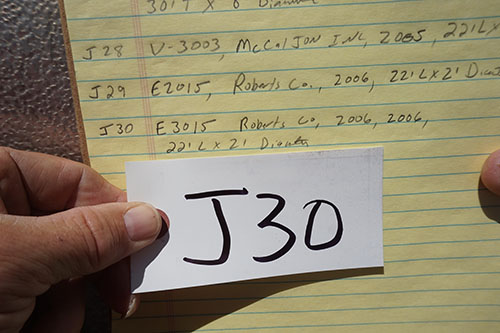 30' T X 8' Diameter
J28 V-3003, McCalJon Inc, 2005, 22'L X
J29 E2015, Roberts Co., 2006, 22'L X 2' Diamet
J30 E3015 Roberts Co, 2006, 2006,
22'L X 2' Diameter
J30